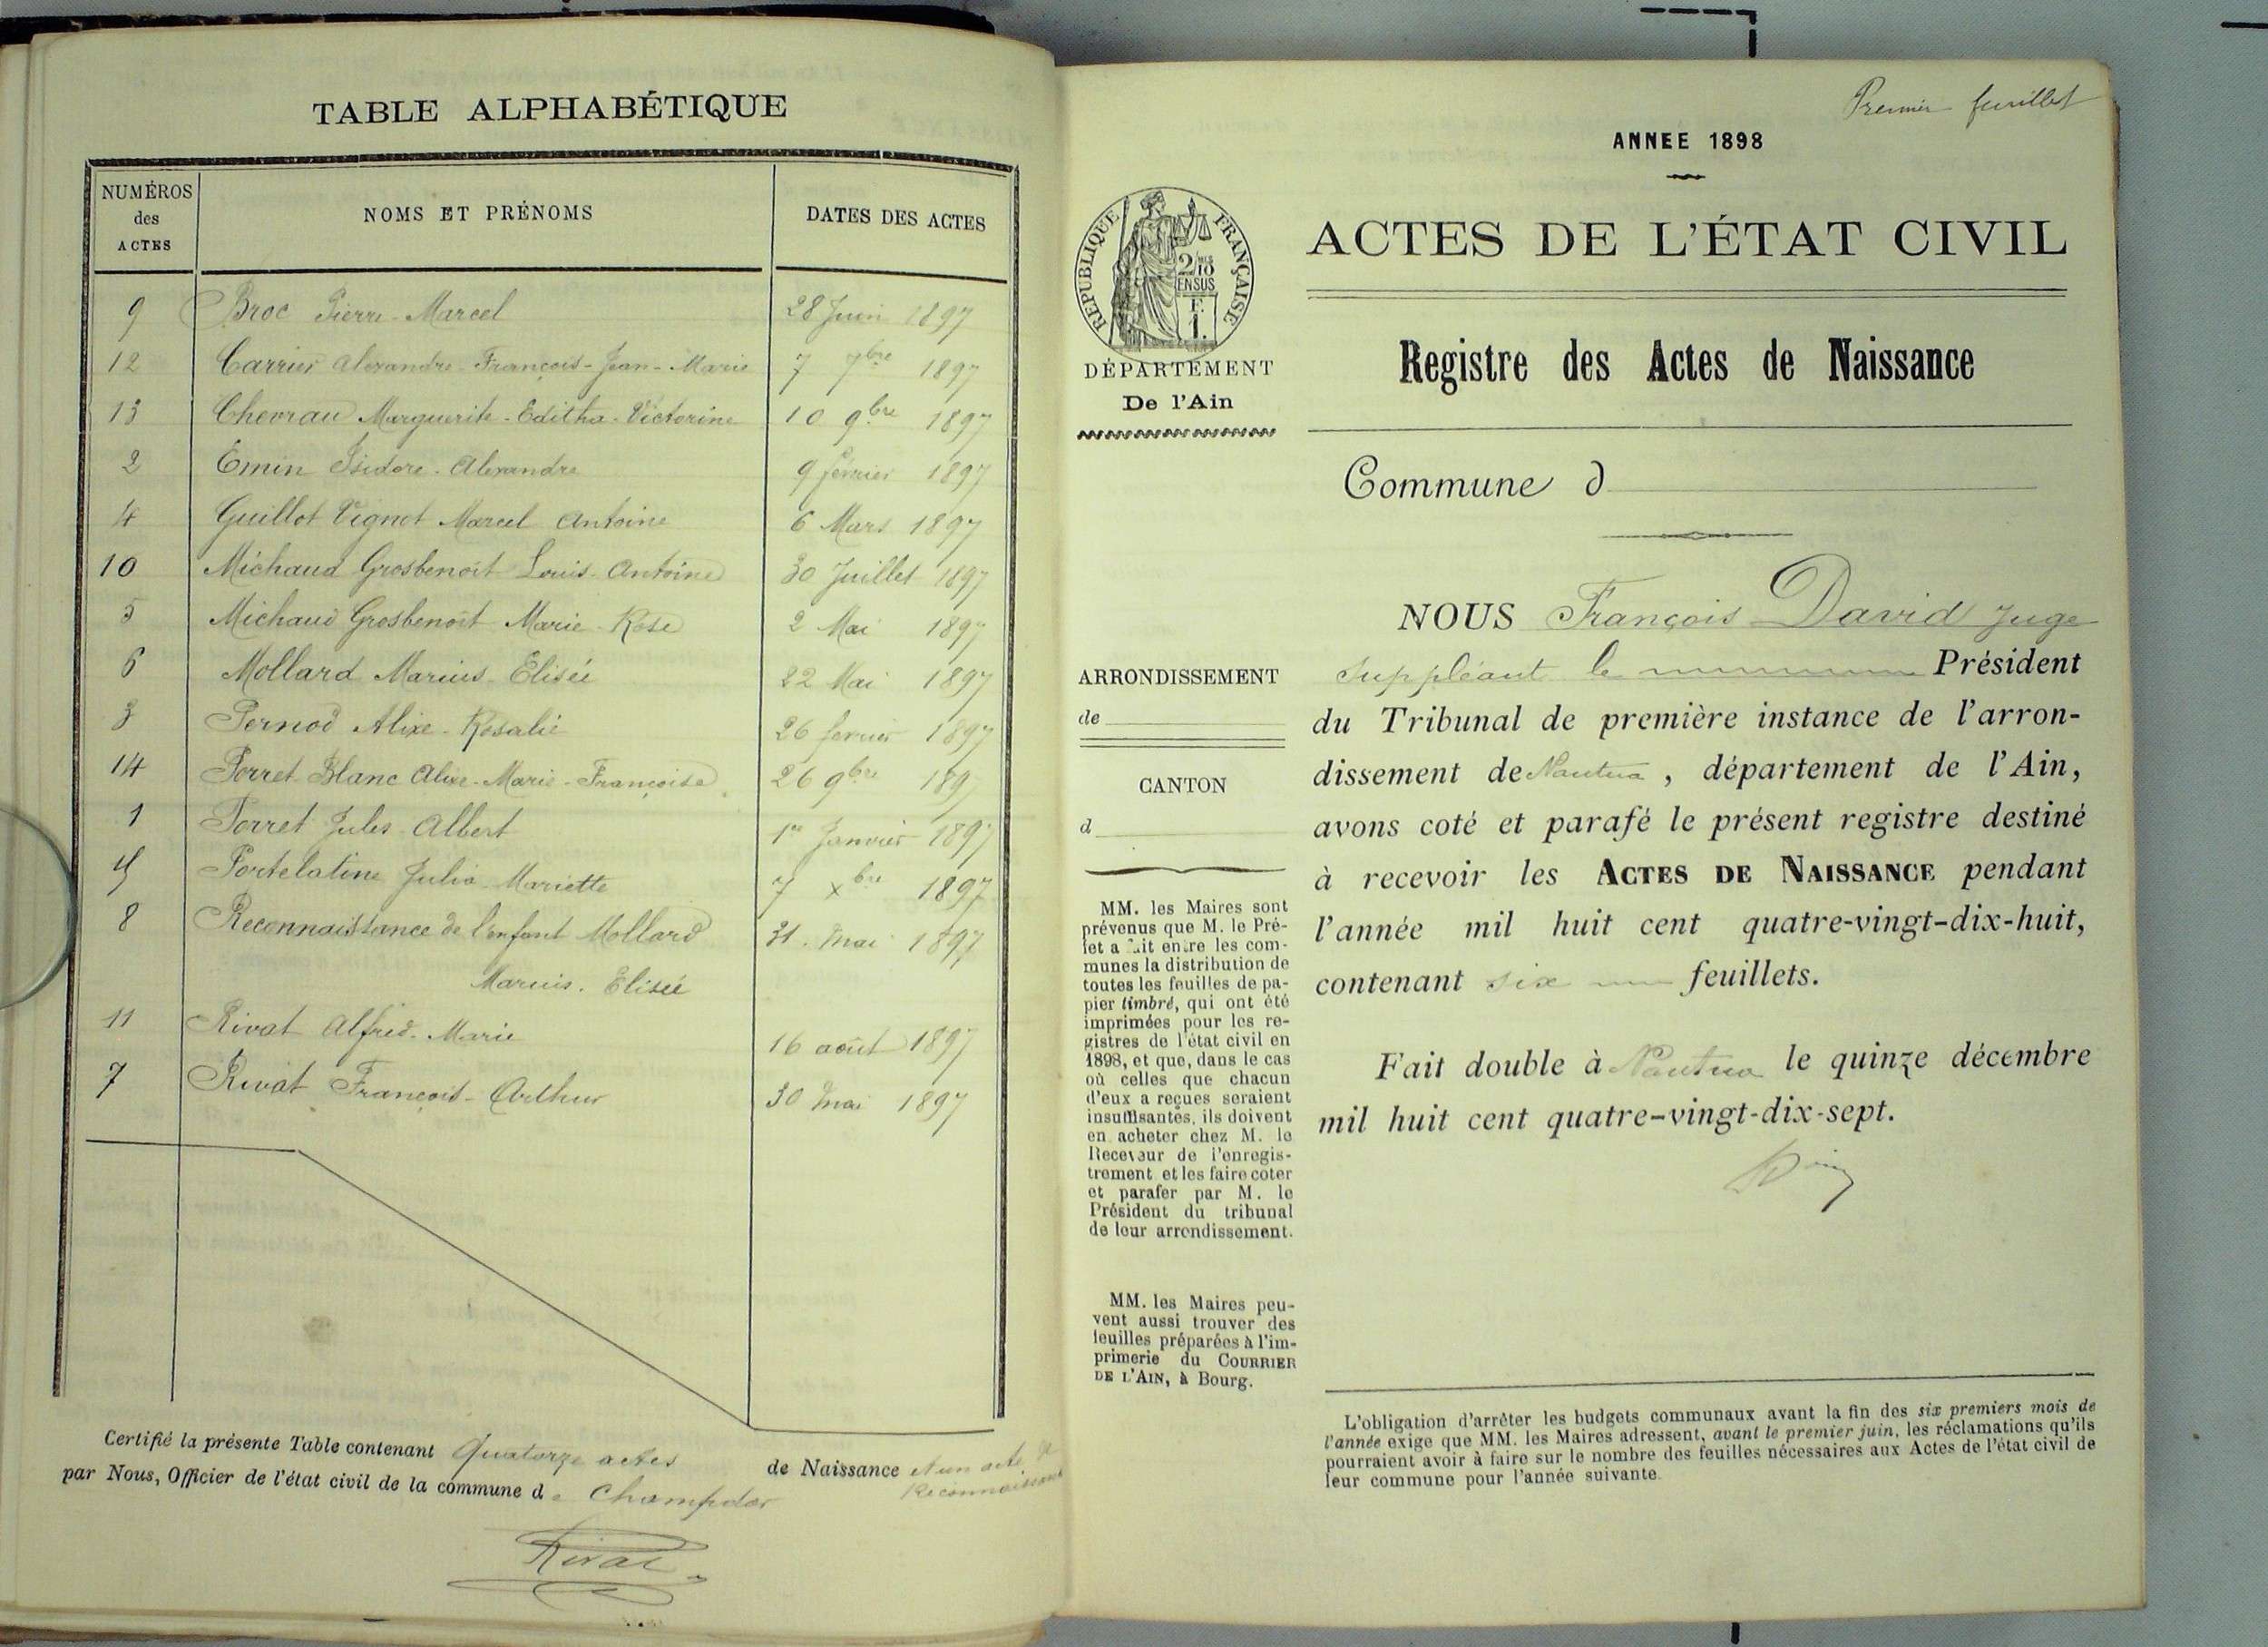 TABLE ALPHABÉTIQUE
NUMÉROS des ACTES
NOMS ET PRÉNOMS
DATES DES ACTES
9 Broc Pierre-Marcel 28 Juin 1897
12 Carrier Alexandre-François-Jean-Marie 7 7bre 1897
13 Chevrau Marguerite-Editha-Victorine 10 9bre 1897
2 Emin Isidore-Alexandre 9 février 1897
4 Guillot Vignot Marcel Antoine 6 Mars 1897
10 Michaud Grosbenoit Louis-Antoine 30 Juillet 1897
5 Michaud Grosbenoit Marie-Rose 2 Mai 1897
6 Mollard Marius-Elisée 22 Mai 1897
3 Pernod Alixe-Rosalie 26 février 1897
14 Porret Blanc Alixe-Marie-Françoise 26 9bre 189
1 Porret Jules-Albert 1er Janvier 1897
Portelatine Julia-Mariette 7 xbre 1897
8 Reconnaissance de l'enfant Mollard 31 Mai 1897
Marius. Elisée
11 Rivat Alfred-Marie 16 août 1897
7 Rivat François-Arthur 30 Mai 1897
Certifié la présente Table contenant Quatorze actes de Naissance et un acte de
Reconnaissance
par Nous, Officier de l'état civil de la commune de Champdor
Rivat
Premier feuillet
ANNEE 1898
RÉPUBLIQUE FRANÇAISE
2/10
EN SUS
F.
1.
ACTES DE L'ÉTAT CIVIL
DÉPARTEMENT
De l'Ain
Registre des Actes de Naissance
Commune d
ARRONDISSEMENT
de
CANTON
d
MM. les Maires sont
prévenus que M. le Pré-
fet a fait entre les com-
munes la distribution de
toutes les feuilles de pa-
pier timbré, qui ont été
imprimées pour les re-
gistres de l'état civil en
1898, et que, dans le cas
où celles que chacun
d'eux a reçues seraient
insuffisantes, ils doivent
en acheter chez M. le
Receveur de l'enregis-
trement et les faire coter
et parafer par M. le
Président du tribunal
de leur arrondissement.
MM. les Maires peu-
vent aussi trouver des
feuilles préparées à l'im-
primerie du COURRIER
DE L'AIN, à Bourg.
NOUS François David Juge
Suppléant le Président
du Tribunal de première instance de l'arron-
dissement de Nantua, département de l'Ain,
avons coté et parafé le présent registre destiné
à recevoir les ACTES DE NAISSANCE pendant
l'année mil huit cent quatre-vingt-dix-huit,
contenant six feuillets.
Fait double à Nantua le quinze décembre
mil huit cent quatre-vingt-dix-sept.
L'obligation d'arrêter les budgets communaux avant la fin des six premiers mois de
l'année exige que MM. les Maires adressent, avant le premier juin, les réclamations qu'ils
pourraient avoir à faire sur le nombre des feuilles nécessaires aux Actes de l'état civil de
leur commune pour l'année suivante.